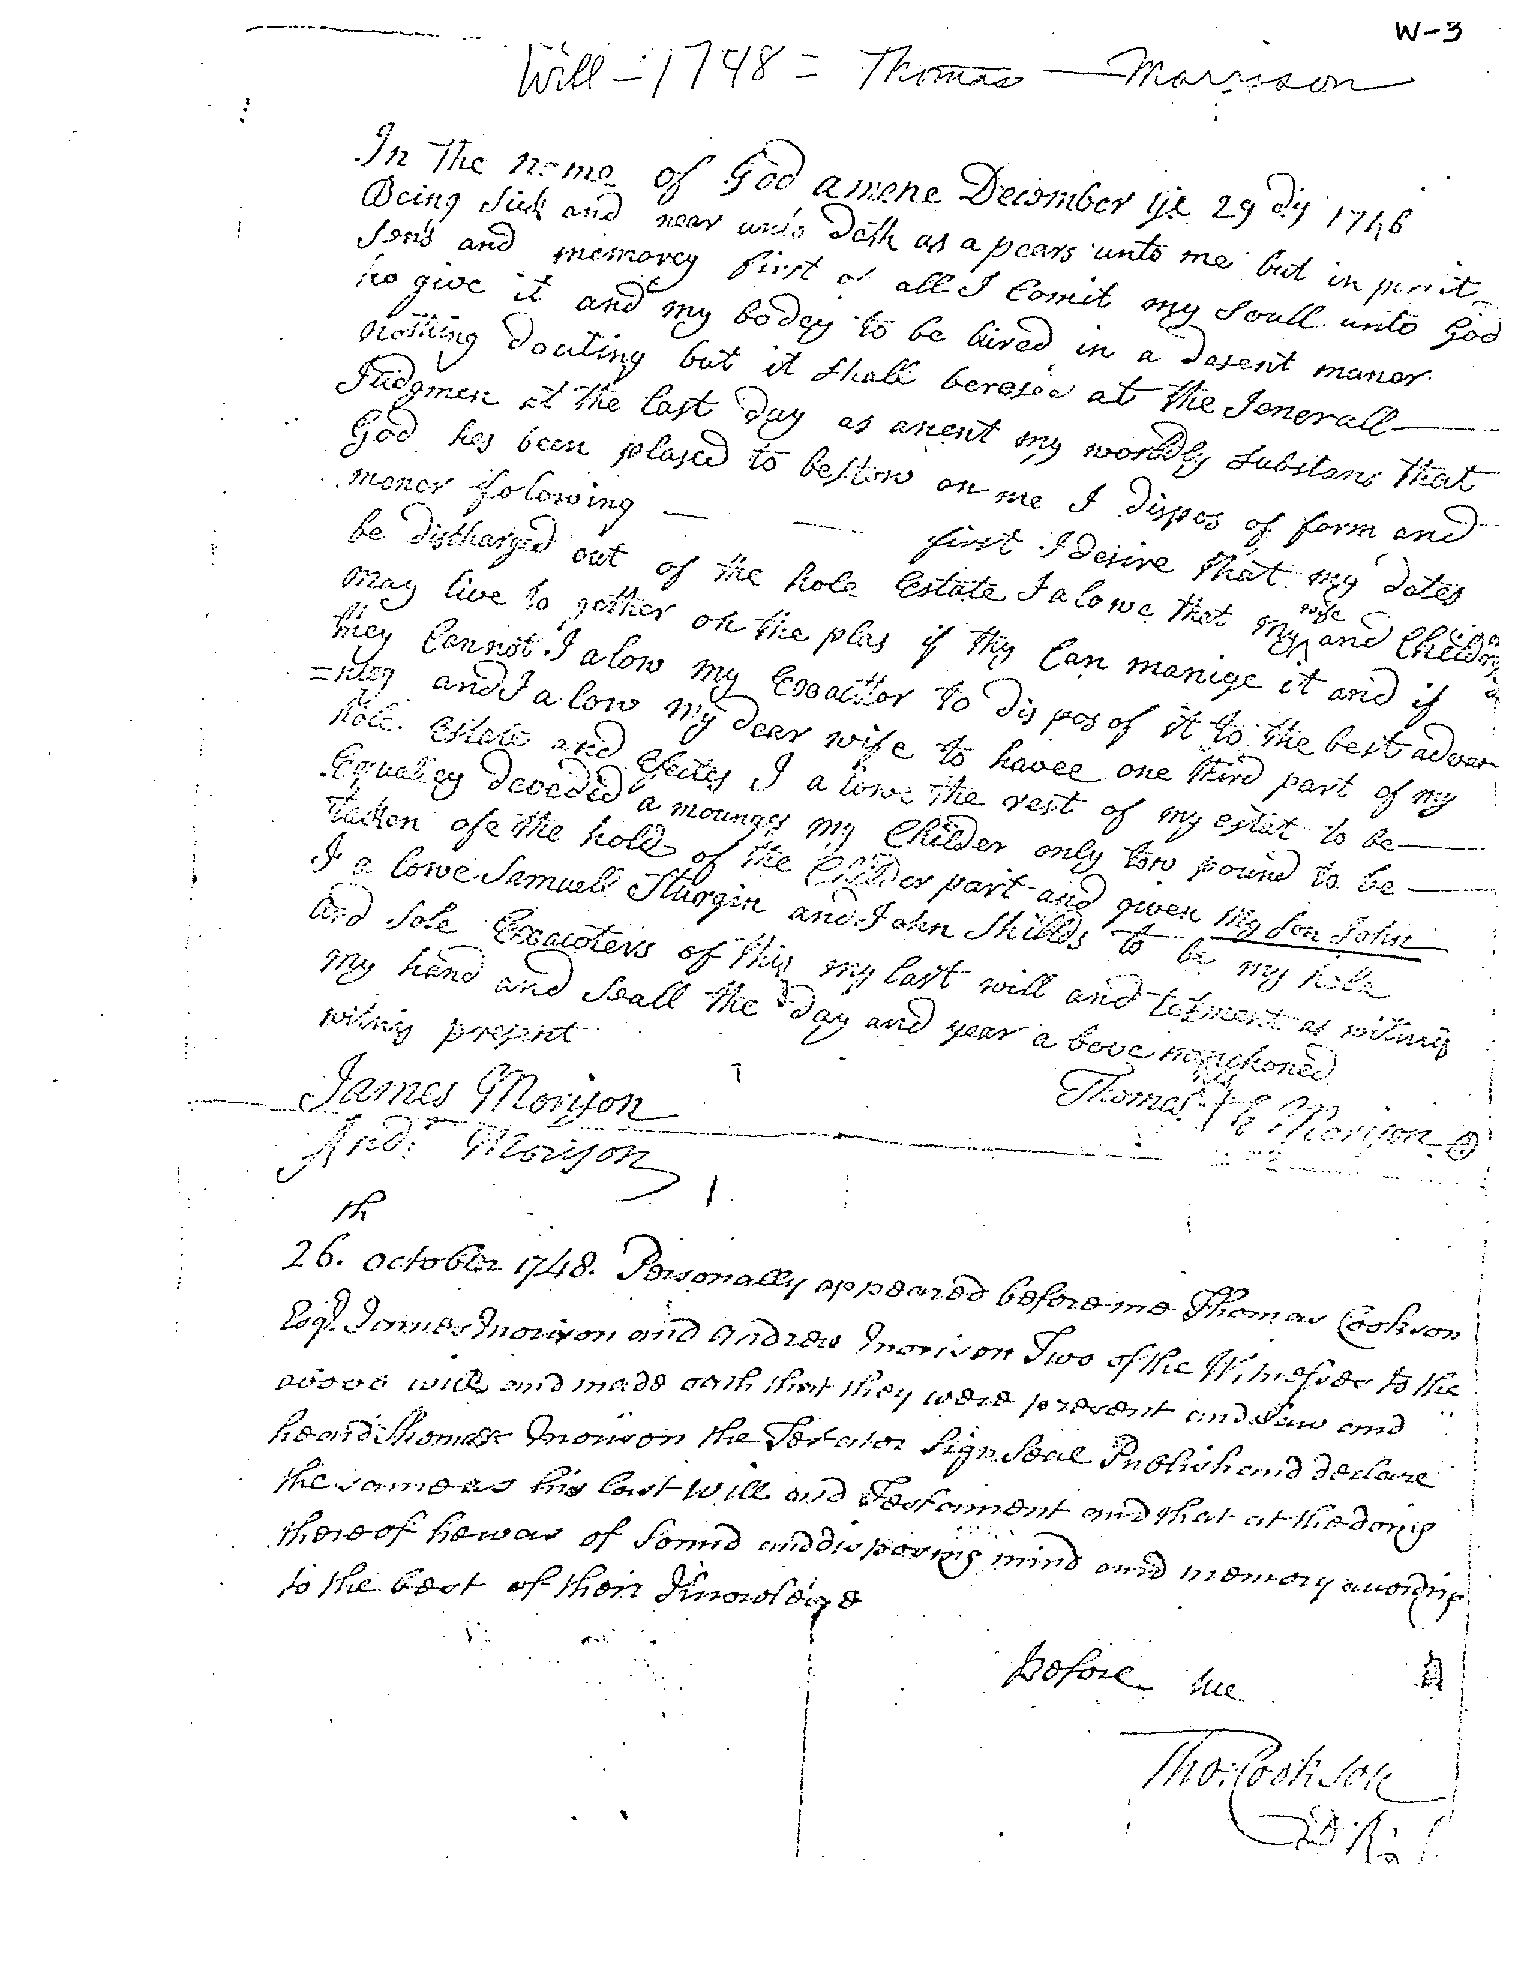 W-3
Will - 1748 = Thomas Morrison
In the name of God amene December ye 29 dy 1746
Being sick and near unto deth as a pears unto me but in parit
sens and memorey first of all I Comit my Soull unto God
ho give it and my bodey to be bired in a desent maner
nothing douting but it shall beresed at the Jenerall
Judgmen at the last day as anent my worldly substans that
God hes been plased to bestow on me I dispos of form and
maner folowing first I desire that my dates
be discharged out of the hole Estate I alowe that my wife and Childring
may live to gether on the plas if thy Can manige it and if
they Cannot I alow my Exacttor to dispos of it to the best advan
=nteg and I a low my dear wife to havee one third part of my
hole Estate and efeites I a lowe the rest of my estat to be
Equaliey deveded a moungs my Childer only tow pound to be
tacken ofe the hold of the Childer part and given my Son John
I a lowe Samuell Sturgin and John Shilds to be my hole
and sole Exacuters of this my last will and testment as witnis
my hand and seall the day and year a bove menchoned
witnis present
James Morison
Thomas Morison
Andr Morison
th
26. October 1748. Personally appeared before me Thomas Cookson
Esqr. James Morison and Andrew Morison Two of the Witnesses to the
above will and made oath that they were present and saw and
heard Thomas Morison the Testator Sign Seal Publish and declare
the same as his last Will and Testament and that at the doing
thereof he was of Sound and disposing mind and memory according
to the best of their Knowledge
Before me
Tho: Cookson
D R